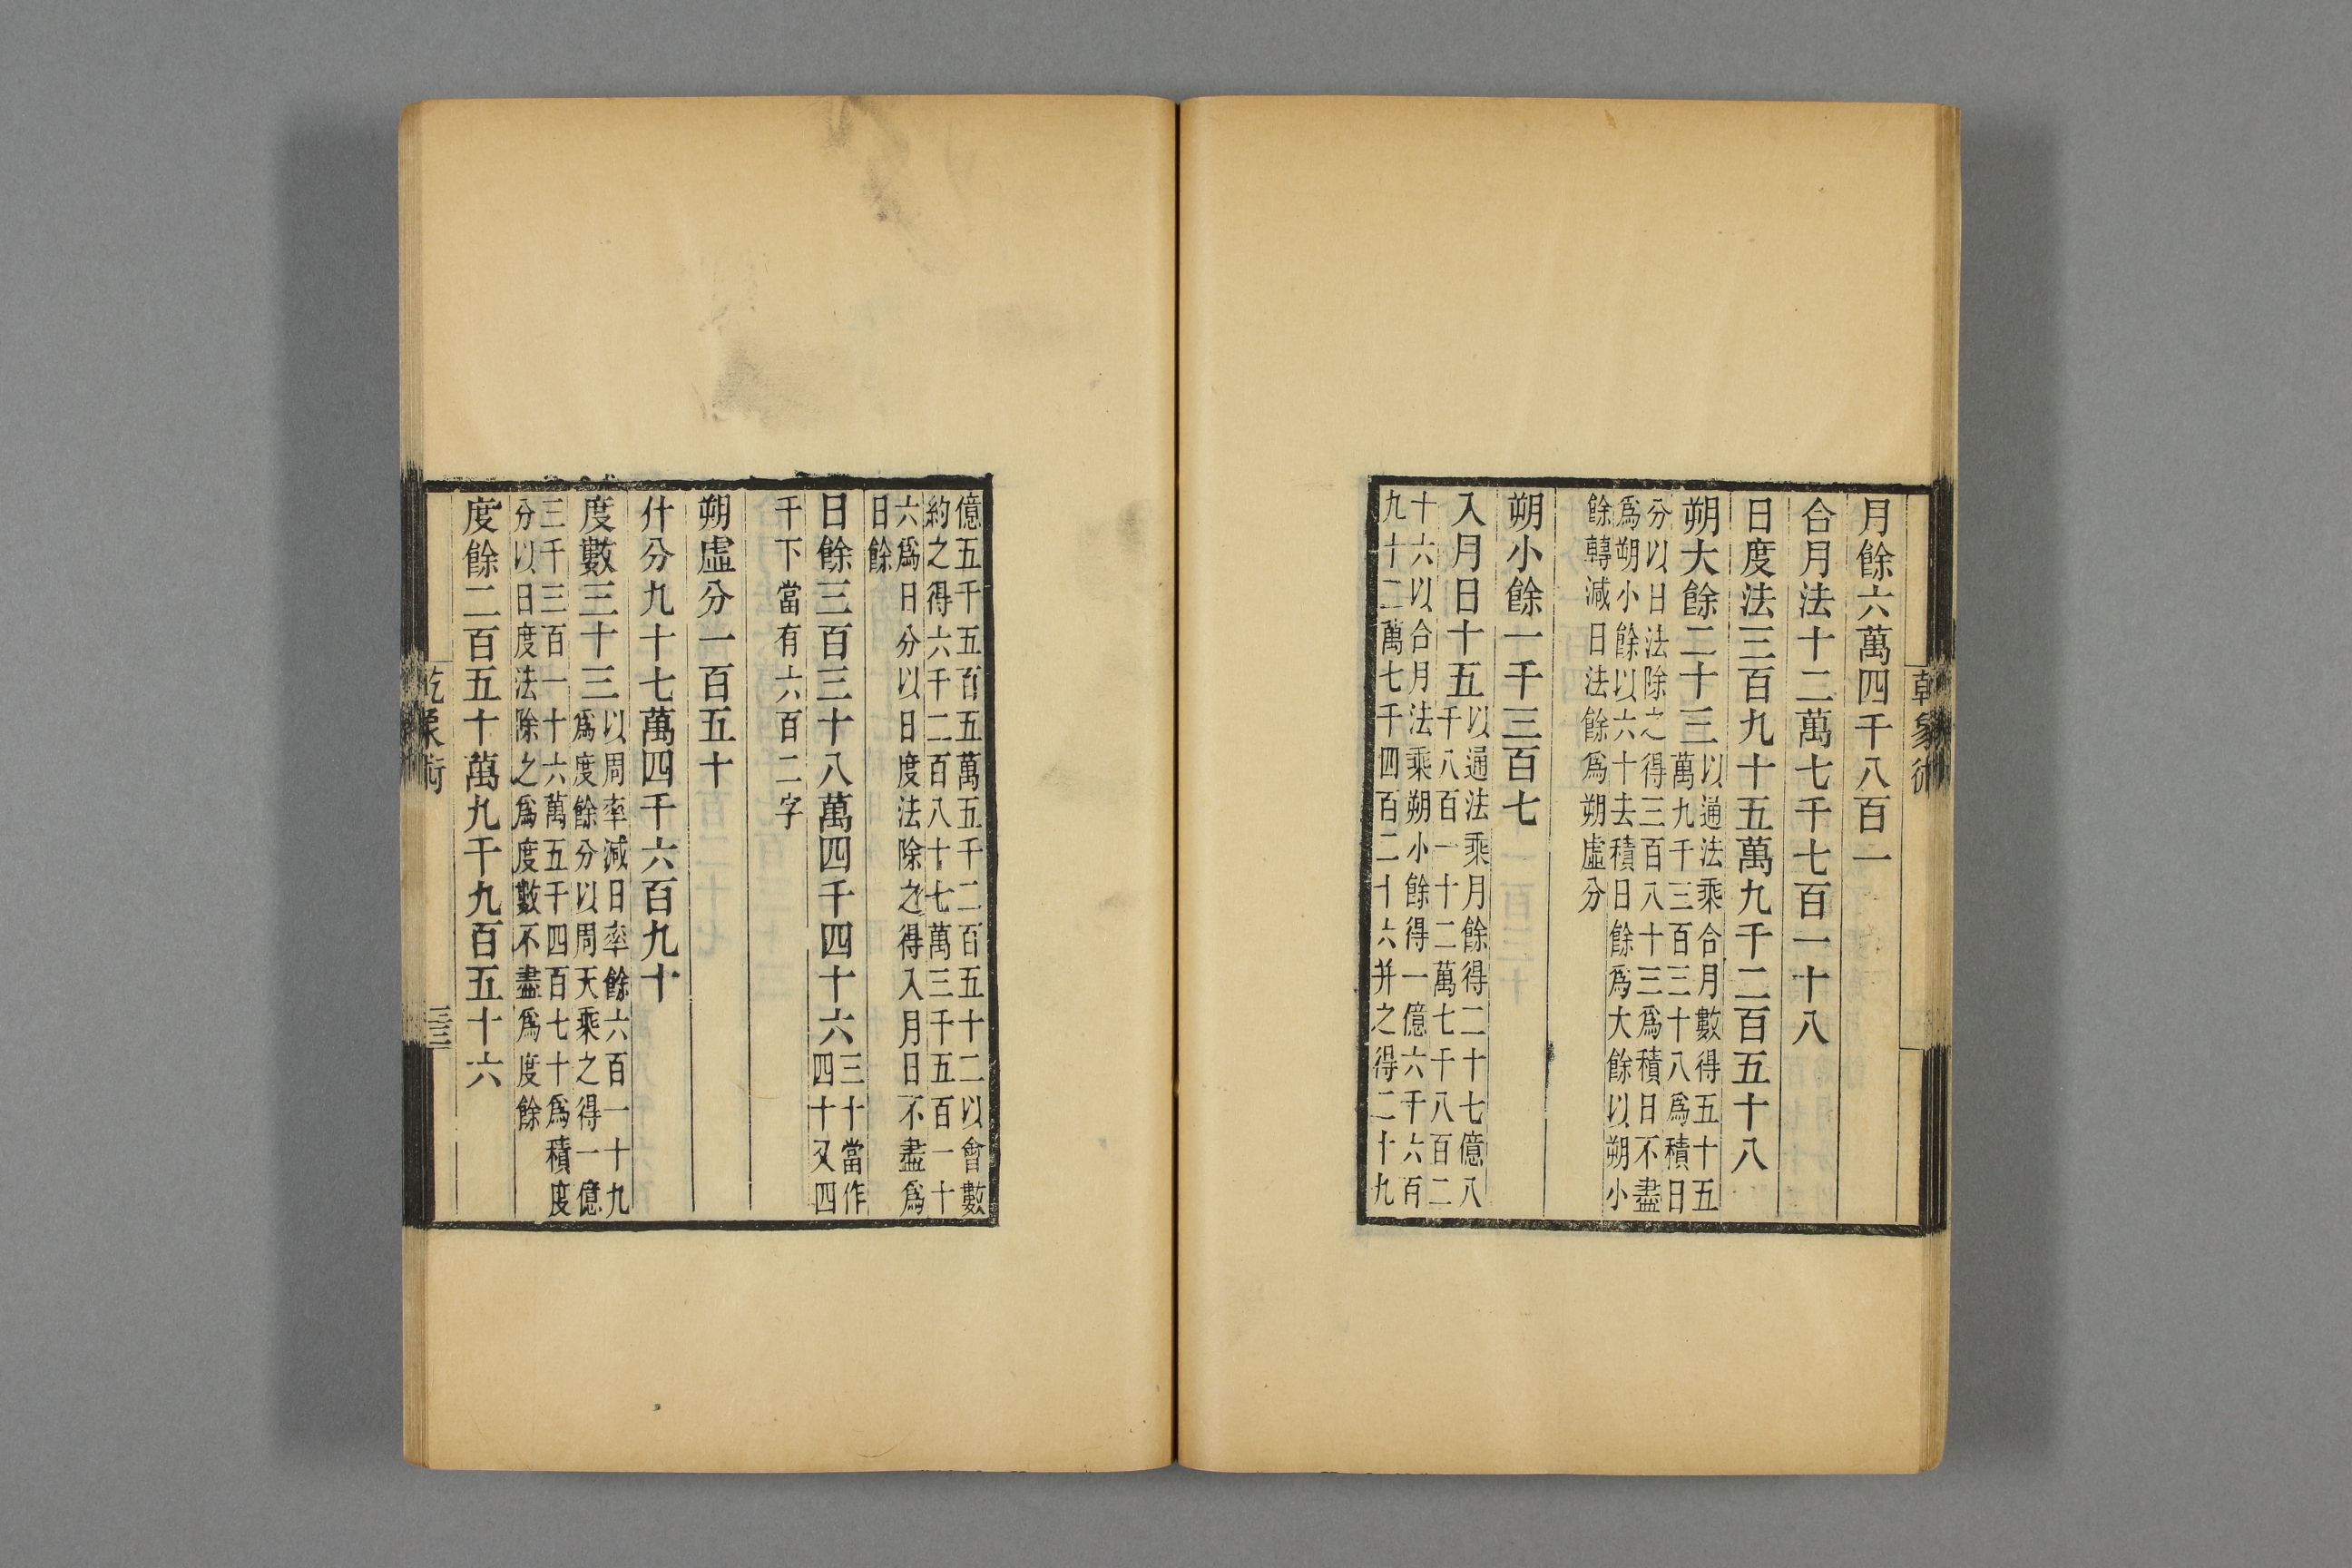 月餘六萬四千八百一
合月法十二萬七千七百一十八
日度法三百九十五萬九千二百五十八
朔大餘二十三以通法乘合月數得五十五
萬九千三百三十八爲積日
分以日法除之得三百八十三爲積日不盡
爲朔小餘以六十去積日餘爲大餘以朔小
餘轉減日法餘爲朔虛分
朔小餘一千三百七
入月日十五以通法乘月餘得二十七億八
千八百一十二萬七千八百二
十六以合月法乘朔小餘得一億六千六百
九十二萬七千四百二十六并之得二十九
億五千五百五萬五千二百五十二以會數
約之得六千二百八十七萬三千五百一十
六爲日分以日度法除之得入月日不盡爲
日餘
日餘三百三十八萬四千四十六三十當作
四十又四
千下當有六百二字
朔虛分一百五十
什分九十七萬四千六百九十
度數三十三以周率減日率餘六百一十九
爲度餘分以周天乘之得一億
三千三百一十六萬五千四百七十爲積度
分以日度法除之爲度數不盡爲度餘
度餘二百五十萬九千九百五十六
乾象術